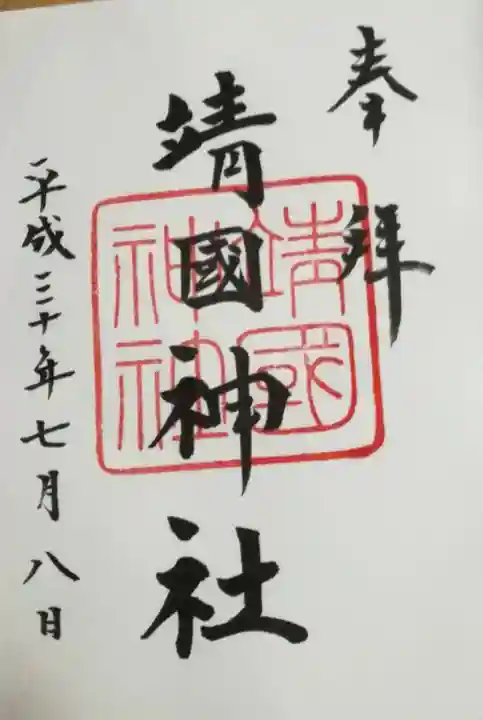 奉拝
靖國神社
靖國神社
平成三十年七月八日